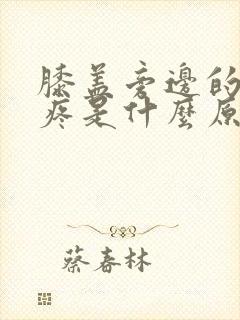 膝盖旁边的
疼是什麼原
蔡春林